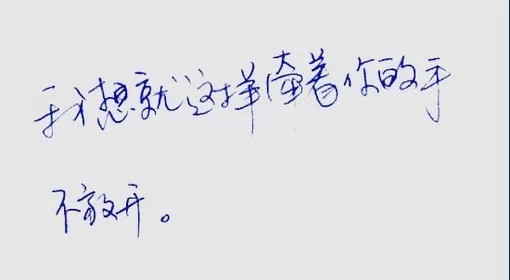 我想就这样牵着你的手
不放开。